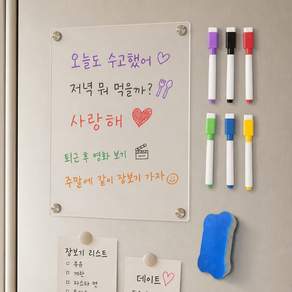 오늘도 수고했어
저녁 뭐 먹을까?
사랑해
퇴근 후 영화 보기
주말에 같이 장보기 가자
장보기 리스트
우유
계란
파스타 면
데이트